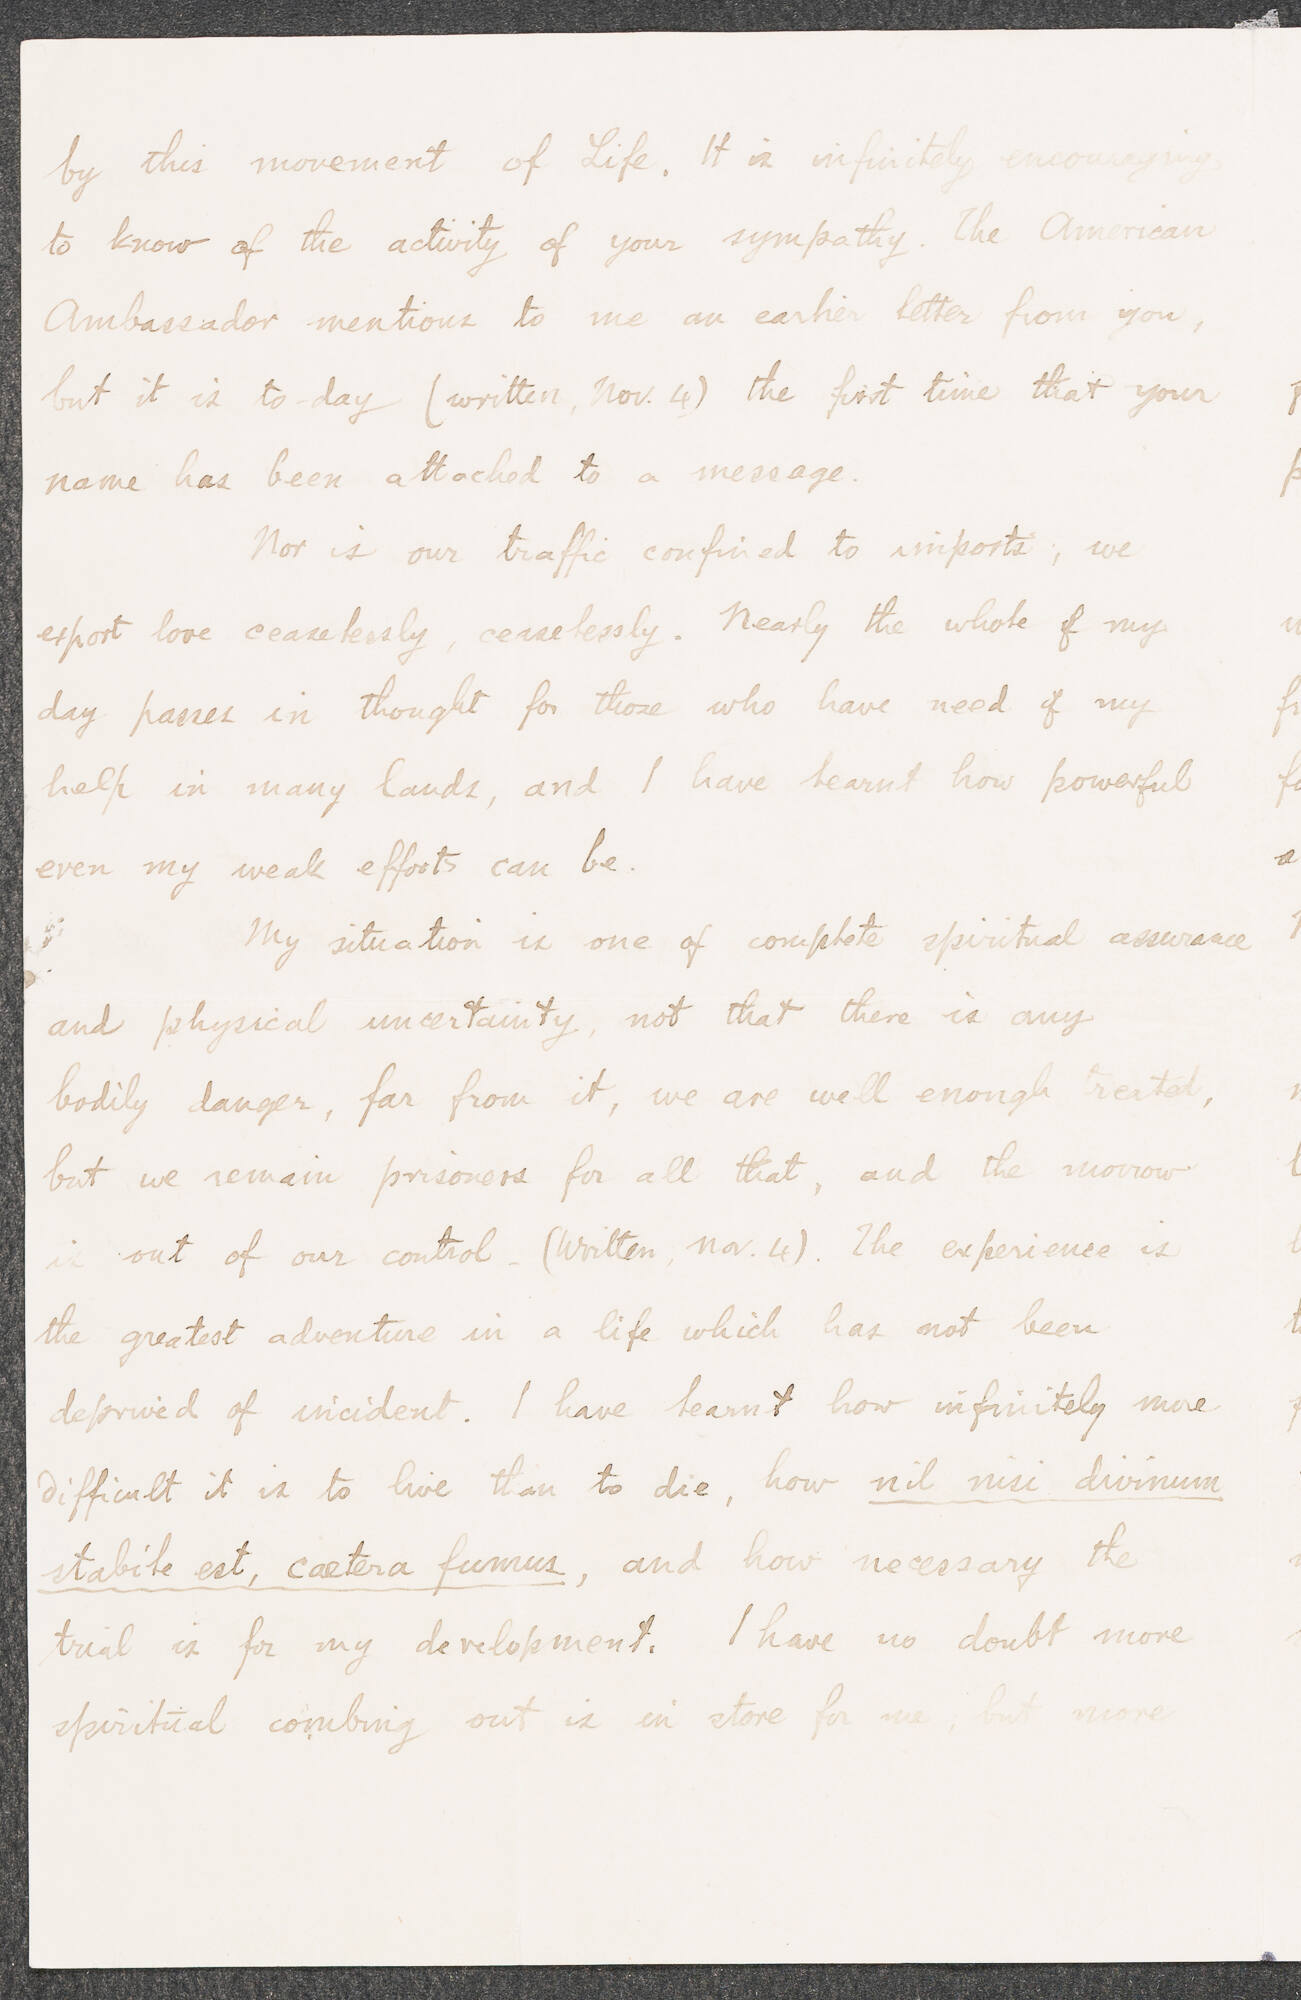 by this movement of Life. It is infinitely encouraging
to know of the activity of your sympathy. The American
Ambassador mentions to me an earlier letter from you,
but it is to-day (written, Nov. 4) the first time that your
name has been attached to a message.
Nor is our traffic confined to imports; we
export love ceaselessly, ceaselessly. Nearly the whole of my
day passes in thought for those who have need of my
help in many lands, and I have learnt how powerful
even my weak efforts can be.
My situation is one of complete spiritual assurance
and physical uncertainty, not that there is any
bodily danger, far from it, we are well enough treated,
but we remain prisoners for all that, and the morrow
is out of our control - (Written, Nov. 4). The experience is
the greatest adventure in a life which has not been
deprived of incident. I have learnt how infinitely more
difficult it is to live than to die, how nil nisi divinum
stabile est, caetera fumus, and how necessary the
trial is for my development. I have no doubt more
spiritual combing out is in store for me, but more